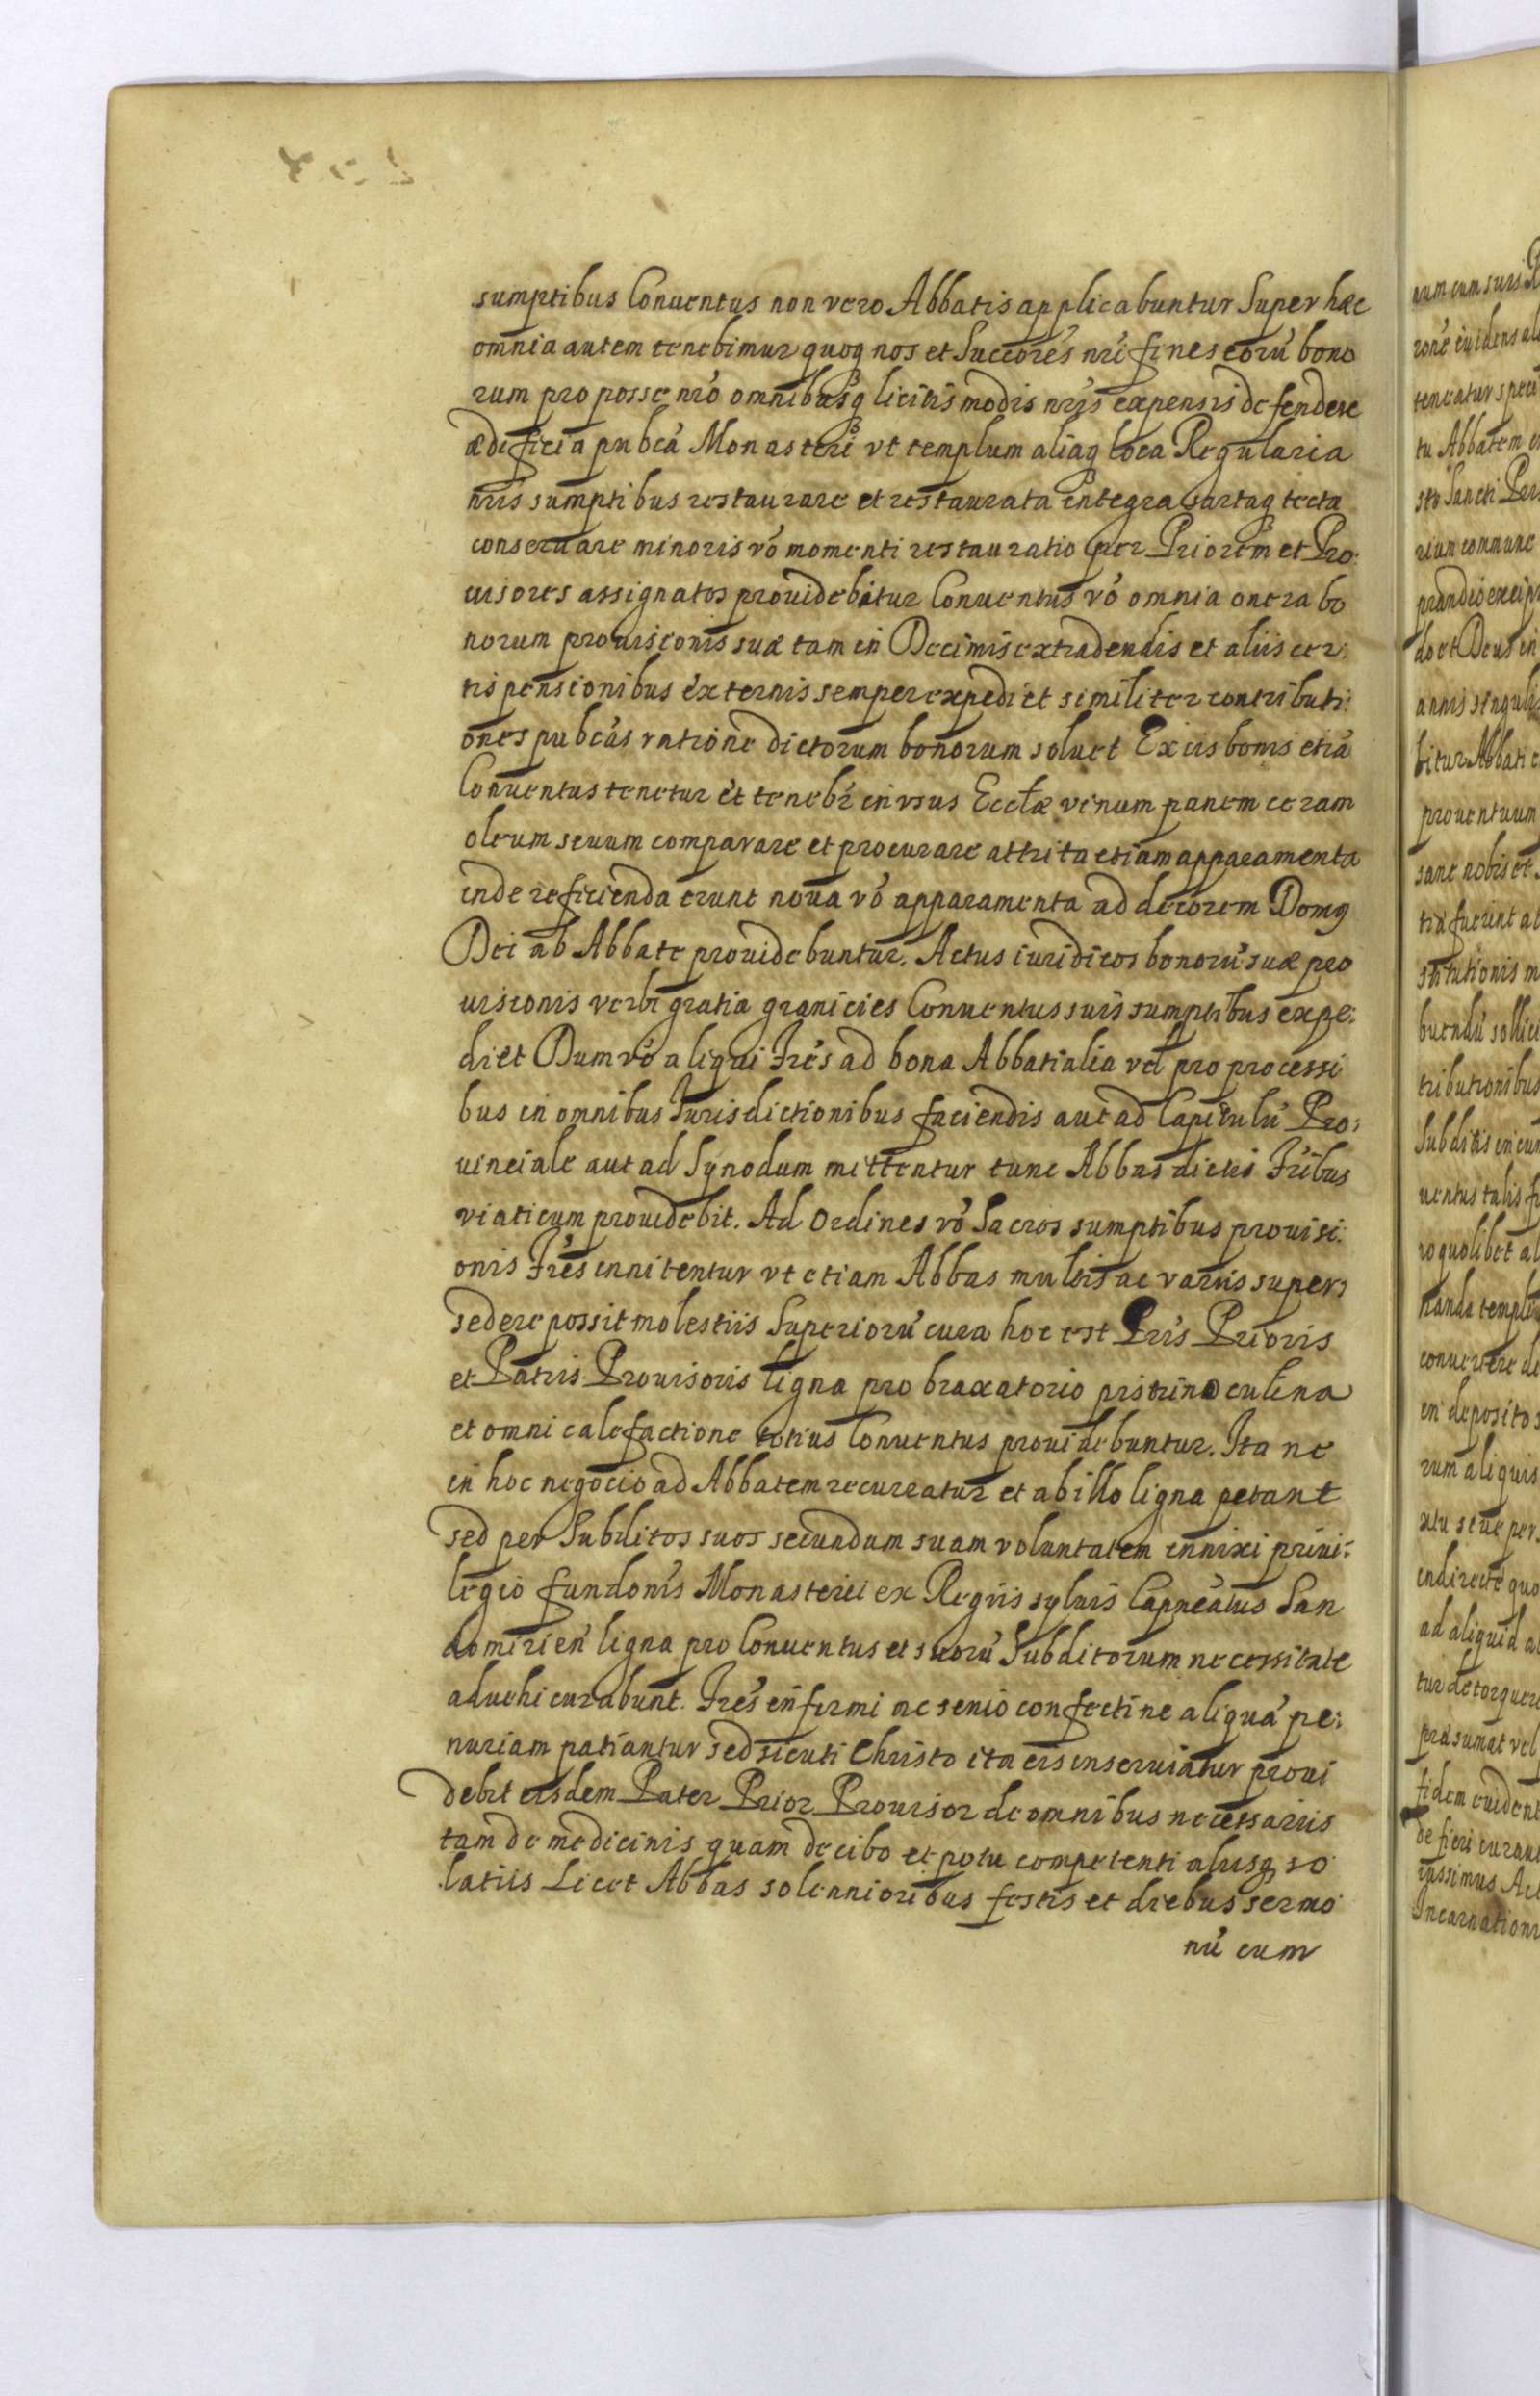 sumptibus Conuentus non vero Abbatis applicabuntur Super hæc
omnia autem tenebimur quoq nos et Succores nri fines eorū bono
rum pro posse nro omnibusq licitis modis nris expensis defendere
ædificia pubca Monasterii vt templum aliaq loca Regularia
nris sumptibus restaurare et restaurata integra sartaq tecta
conseruare minoris vo momenti restauratio per Priorem et Pro:
uisores assignatos prouidebitur Conuentus vo omnia onera bo
norum prouisionis suæ tam in Decimis extradendis et aliis cer:
tis pensionibus externis semper expediet similiter contributi:
ones pubcas ratione dictorum bonorum soluet Ex iis bonis etiā
Conuentus tenetur et tenebr in vsus Eccłæ vinum panem ceram
oleum seuum comparare et procurare attrita etiam apparamenta
inde reficienda erunt noua vo apparamenta ad decorem Domq
Dei ab Abbate prouidebuntur. Actus iuridicos bonorū suæ pro
uisionis verbi gratia granicies Conuentus suis sumptibus expe:
diet Dum vo aliqui Fres ad bona Abbatialia vel pro processi
bus in omnibus Jurisdictionibus faciendis aut ad Capitulū Pro:
uinciale aut ad Synodum mittentur tunc Abbas dictis Fribus
viaticum prouidebit. Ad Ordines vo Sacros sumptibus prouisi:
onis Fres innitentur vt etiam Abbas multis ac variis super:
sedere possit molestiis Superiorū cura hoc est Pris Prioris
et Patris Prouisoris ligna pro braxatorio pistrino culina
et omni calefactione totius Conuentus prouidebuntur. Ita ne
in hoc negocio ad Abbatem recurratur et ab illo ligna petant
sed per Subditos suos secundum suam voluntatem innixi priui:
legio fundonis Monasterii ex Regiis syluis Capneatus San
domirien ligna pro Conuentus et suorū Subditorum necessitate
aduehi curabunt. Fres infirmi ac senio confecti ne aliquā pe:
nuriam patiantur sed sicuti Christo ita eis inseruiatur proui
debit eisdem Pater Prior Prouisor de omnibus necessariis
tam de medicinis quam de cibo et potu competenti aliisq so
latiis Licet Abbas solennioribus festis et diebus sermo
nū cum